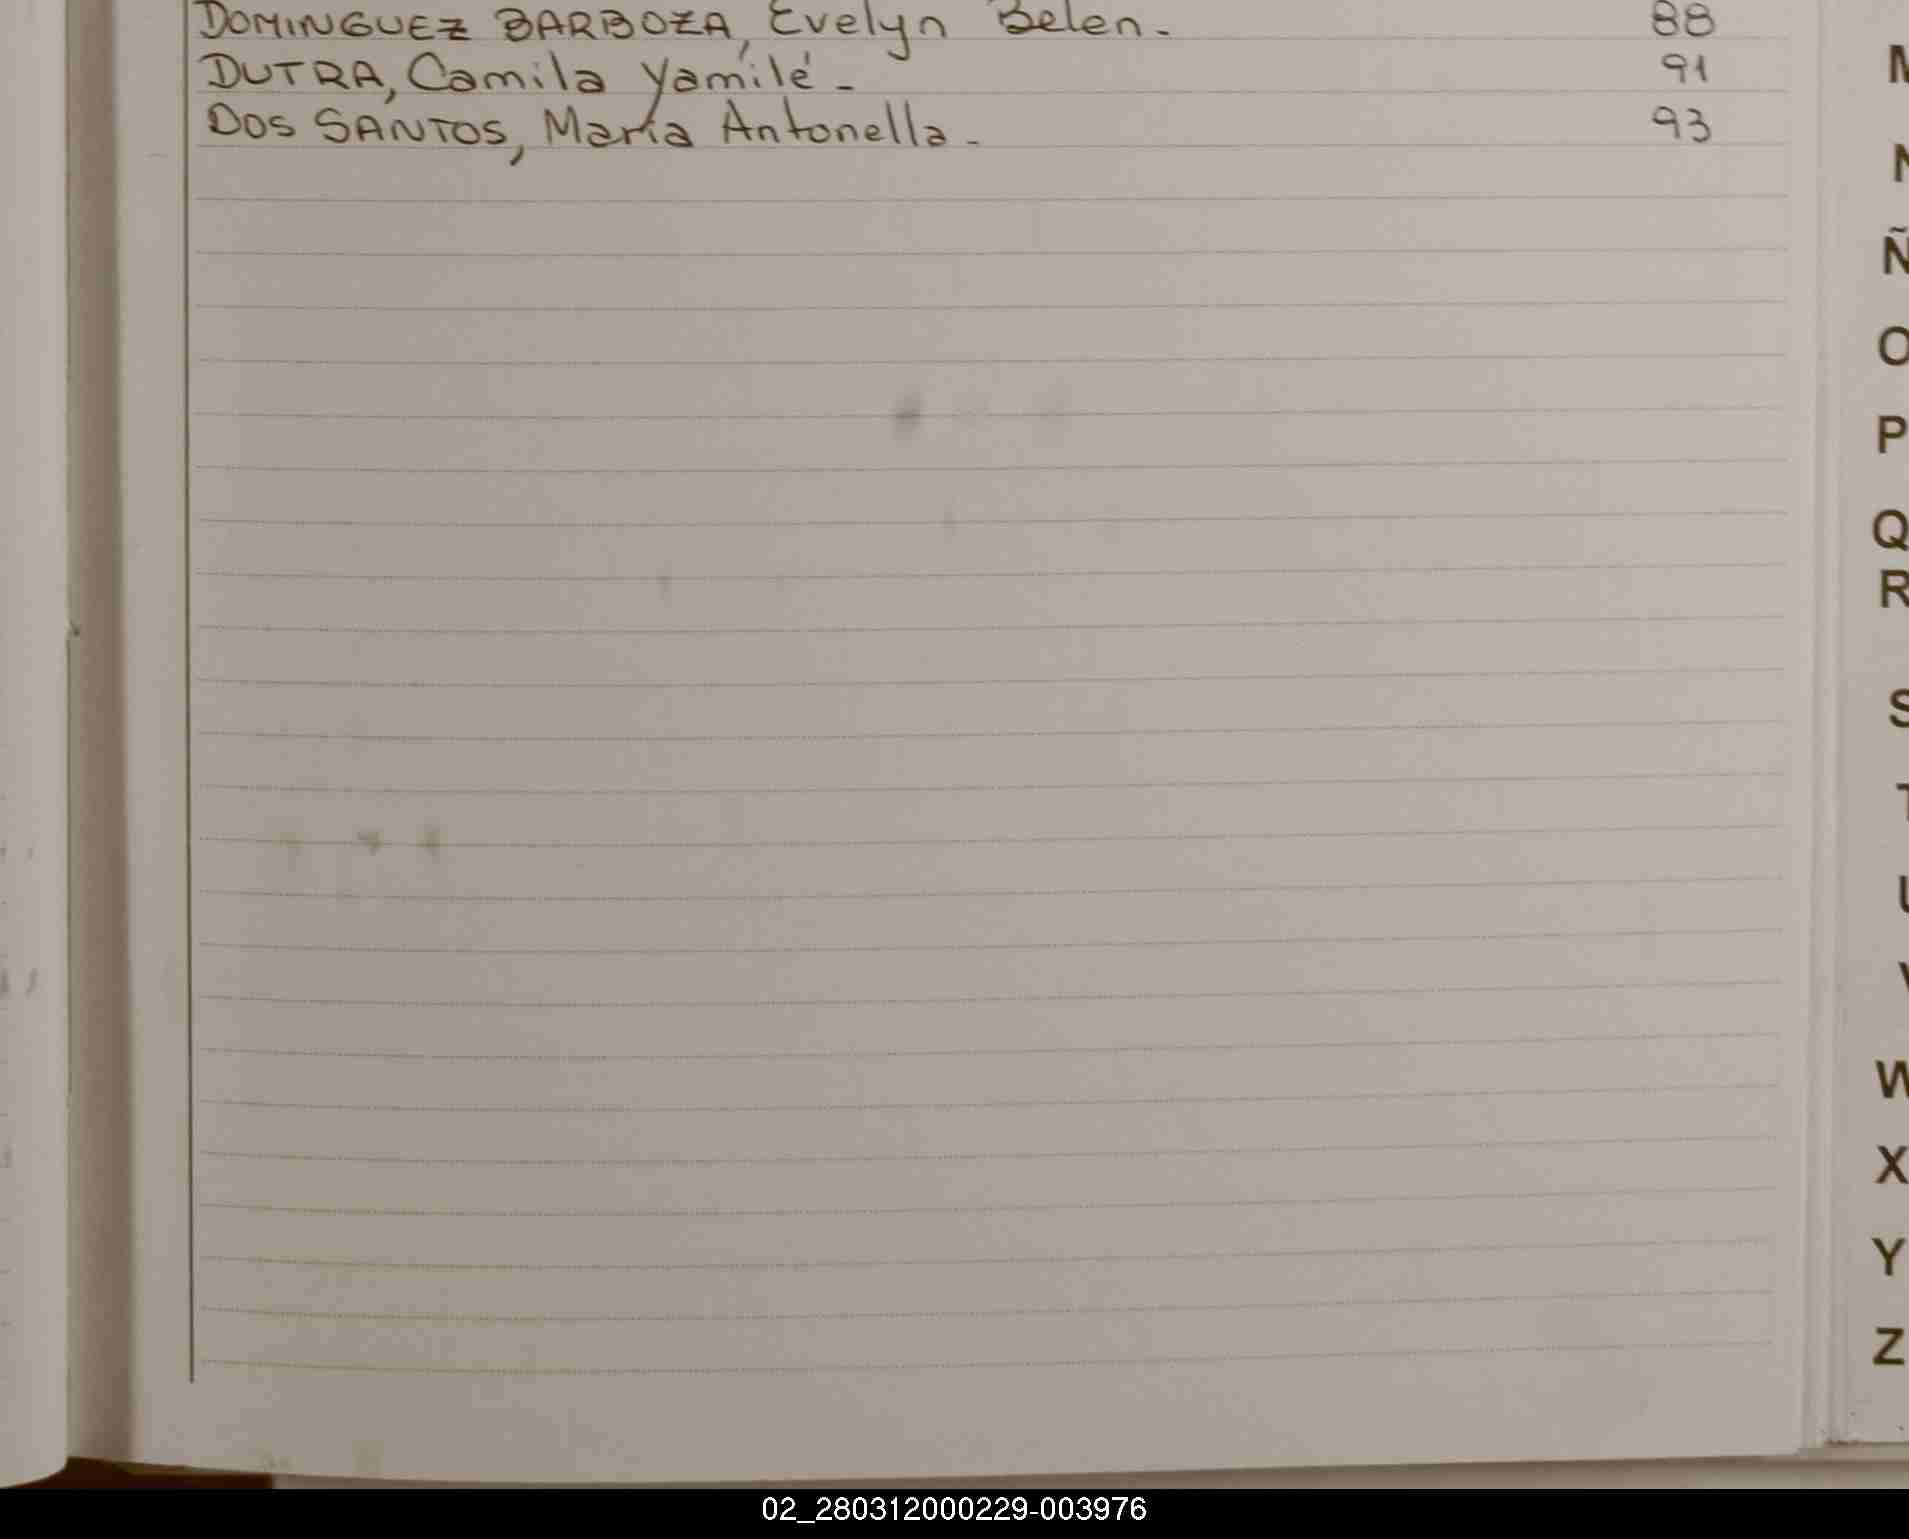 DOMINGUEZ BARBOZA, Evelyn Belen. 88
DUTRA, Camila Yamilé - 91
DOS SANTOS, María Antonella - 93
M
N
Ñ
O
P
Q
R
S
T
U
V
W
X
Y
Z
02_280312000229-003976